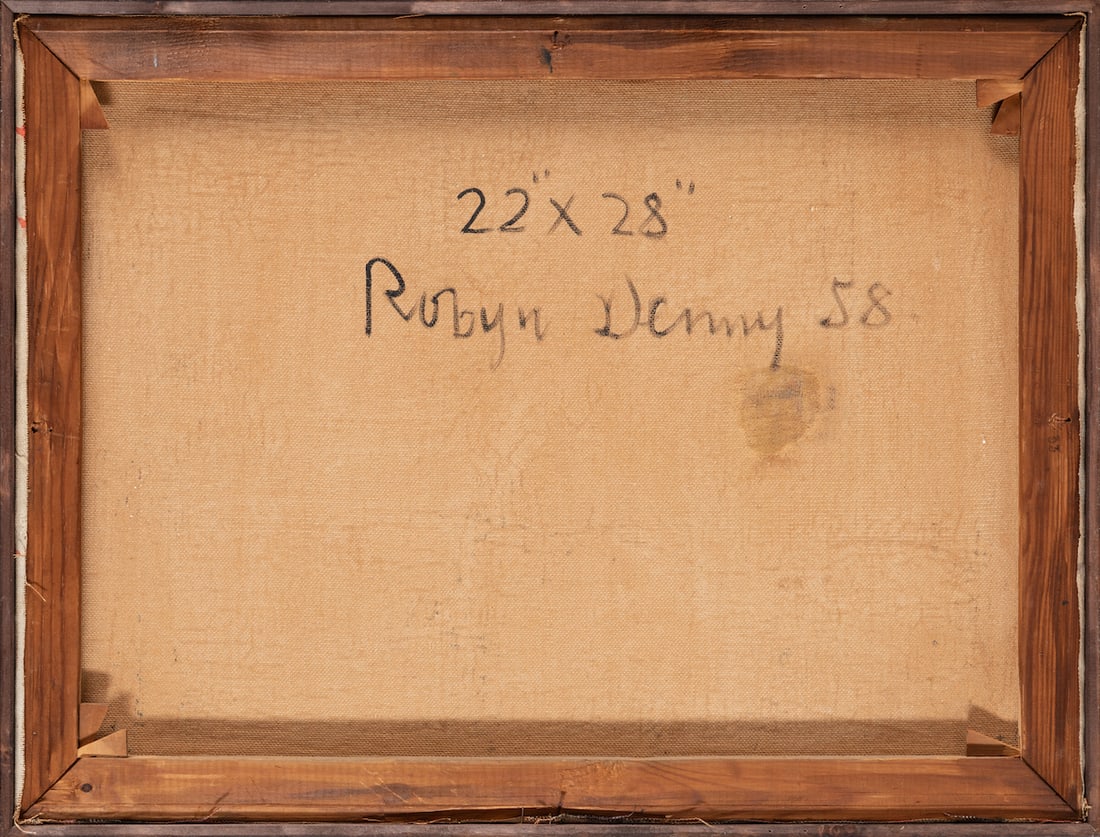 22" x 28"
Robyn Denny 58.